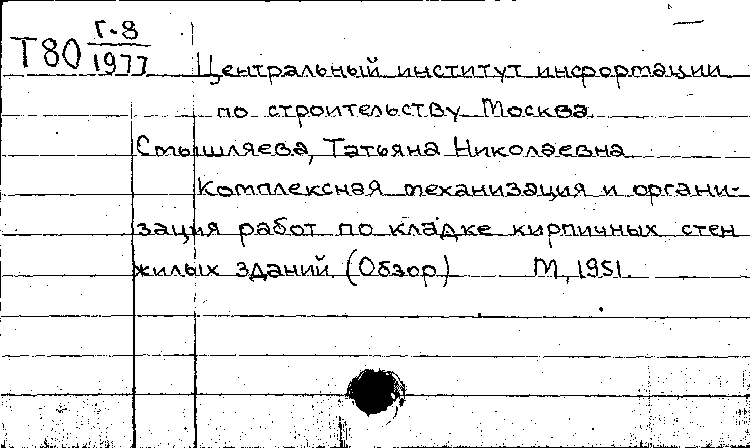 Т80 Г-8
1977
Центральный институт информации
по строительству. Москва.
Смышляева, Татьяна Николаевна
Комплексная механизация и органи-
зация работ по кладке кирпичных стен
жилых зданий. (Обзор) М, 1951.